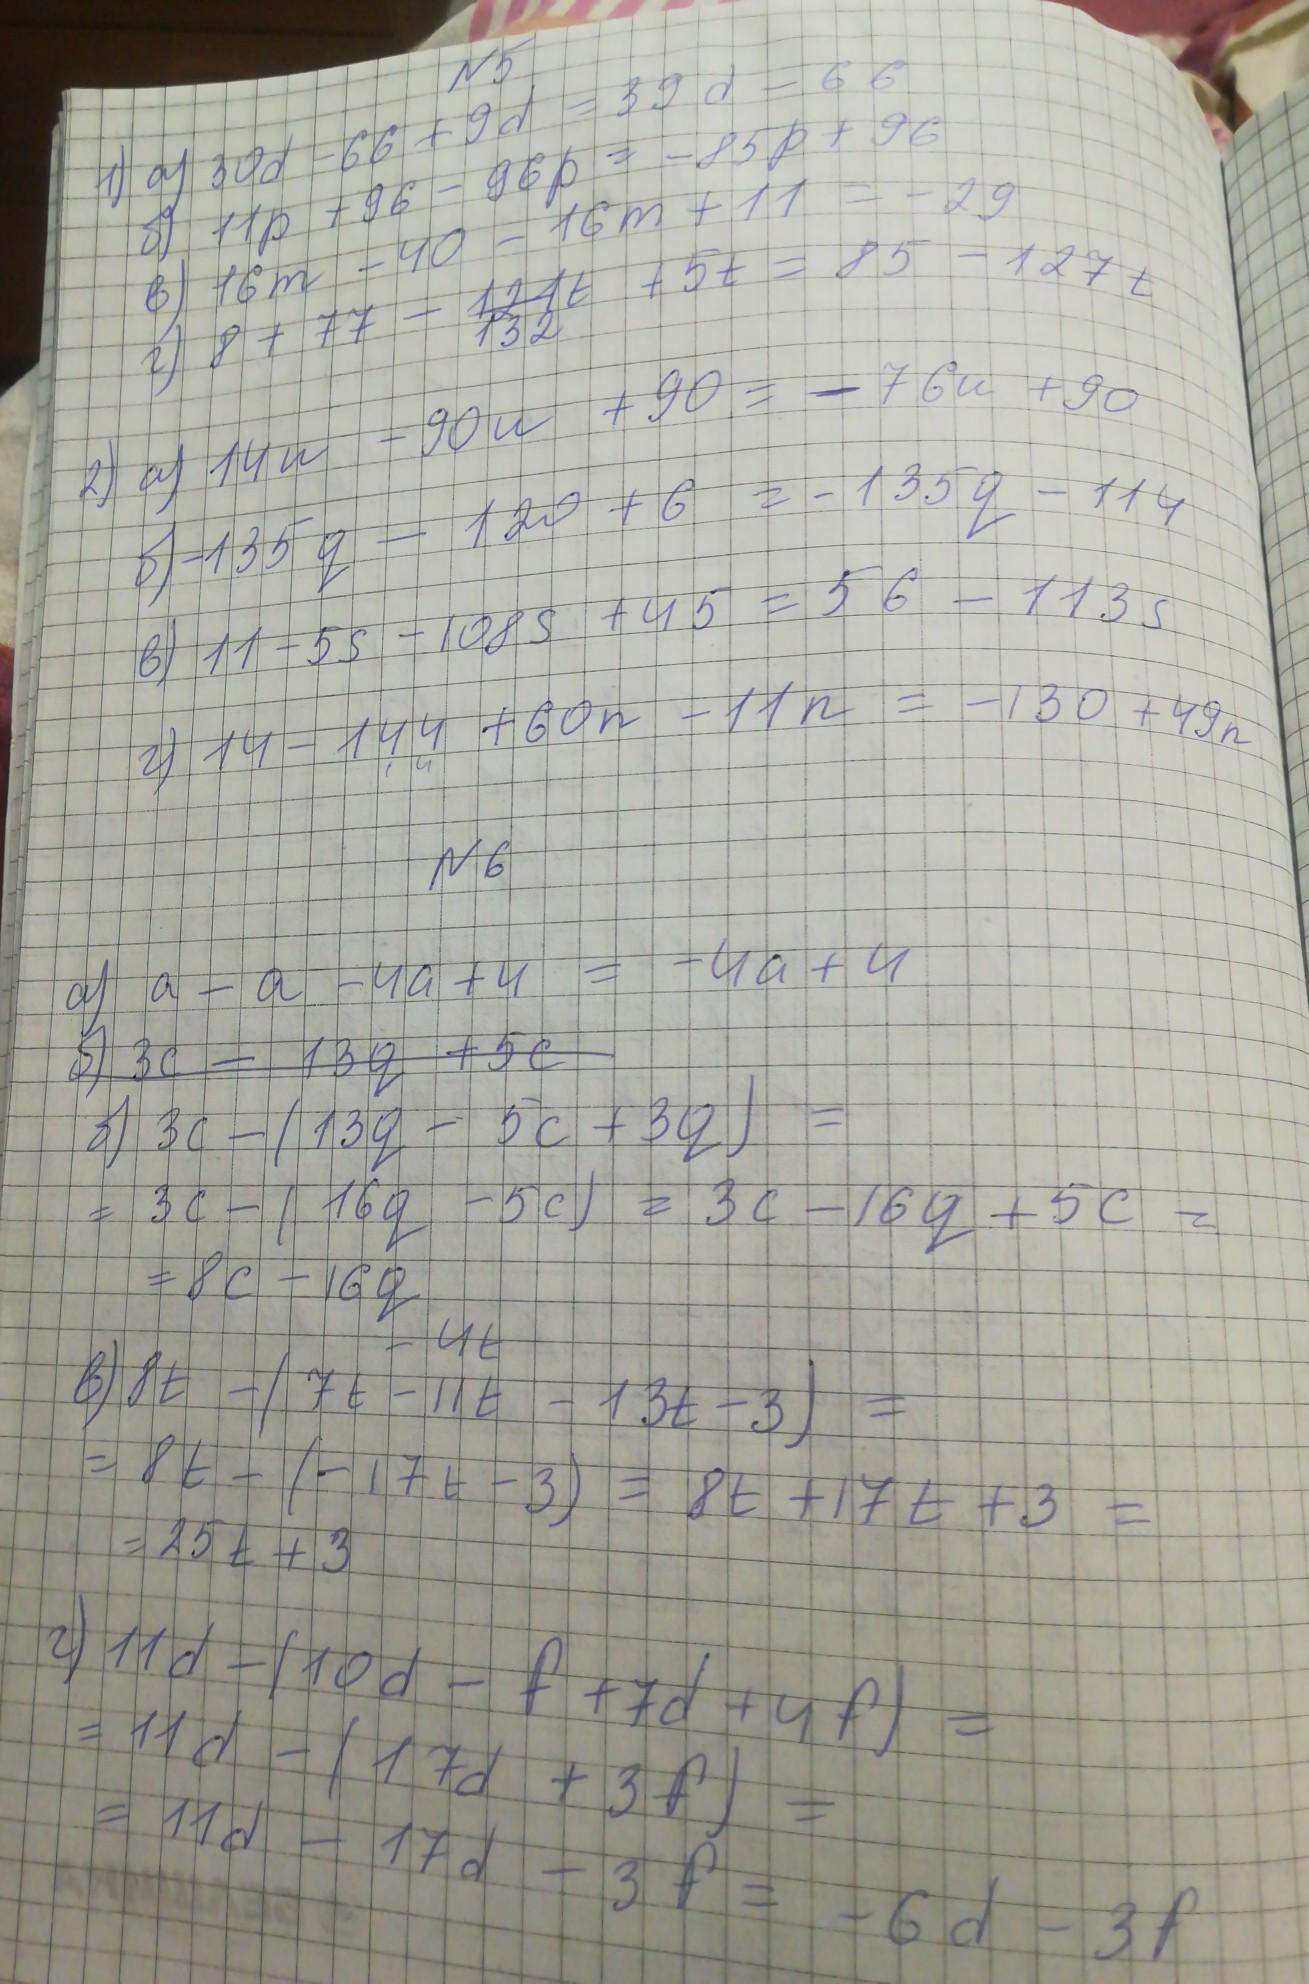 N5
1) а) 30d - 66 + 9d = 39d - 66
б) 11p + 96 - 96p = -85p + 96
в) 16m - 40 - 16m + 11 = -29
г) 8 + 77 - 121t + 5t = 85 - 127t
132
2) а) 14u - 90u + 90 = -76u + 90
б) -135q - 120 + 6 = -135q - 114
в) 11 - 5s - 108s + 45 = 56 - 113s
г) 14 - 144 + 60n - 11n = -130 + 49n
N6
а) a - a - 4a + 4 = -4a + 4
б) 3c - 13q + 5c
б) 3c - (13q - 5c + 3q) =
= 3c - (16q - 5c) = 3c - 16q + 5c =
= 8c - 16q
- 4t
в) 8t - (7t - 11t - 13t - 3) =
= 8t - (-17t - 3) = 8t + 17t + 3 =
= 25t + 3
г) 11d - (10d - f + 7d + 4f) =
= 11d - (17d + 3f) =
= 11d - 17d - 3f = -6d - 3f